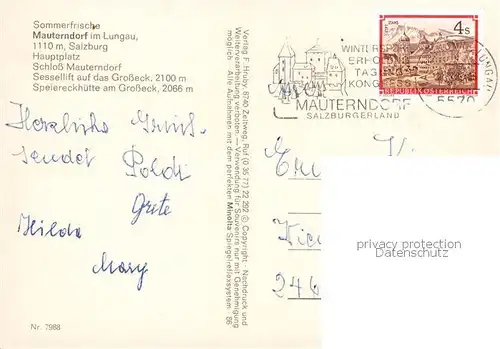 Sommerfrische
Mauterndorf im Lungau,
1110 m, Salzburg
Hauptplatz
Schloß Mauterndorf
Sessellift auf das Großeck, 2100 m
Speiereckhütte am Großeck, 2066 m
Herzliche Grüße
sendet Poldi
Grete
Hilda
Mary
Nr. 7988
Verlag F. Hruby, 8740 Zeltweg, Ruf (0 35 77) 22 292 © Copyright - Nachdruck und
Weiterverarbeitung verboten — Verwendung für Souvenirs nur mit Genehmigung
möglich - Alle Aufnahmen mit dem perfekten Minolta Spiegelreflexsystem - 86
WINTERSPORT
ERHO
TAG
KONG
MAUTERNDORF
SALZBURGERLAND
4 S
REPUBLIK ÖSTERREICH
LUNGAU
5570
246
privacy protection
Datenschutz